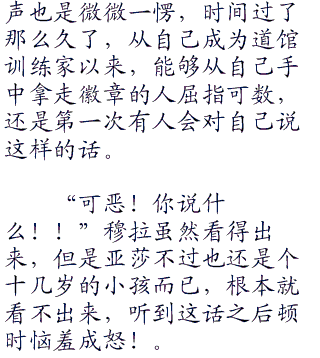 声也是微微一愣，时间过了
那么久了，从自己成为道馆
训练家以来，能够从自己手
中拿走徽章的人屈指可数，
还是第一次有人会对自己说
这样的话。
“可恶！你说什
么！！”穆拉虽然看得出
来，但是亚莎不过也还是个
十几岁的小孩而已，根本就
看不出来，听到这话之后顿
时恼羞成怒！。